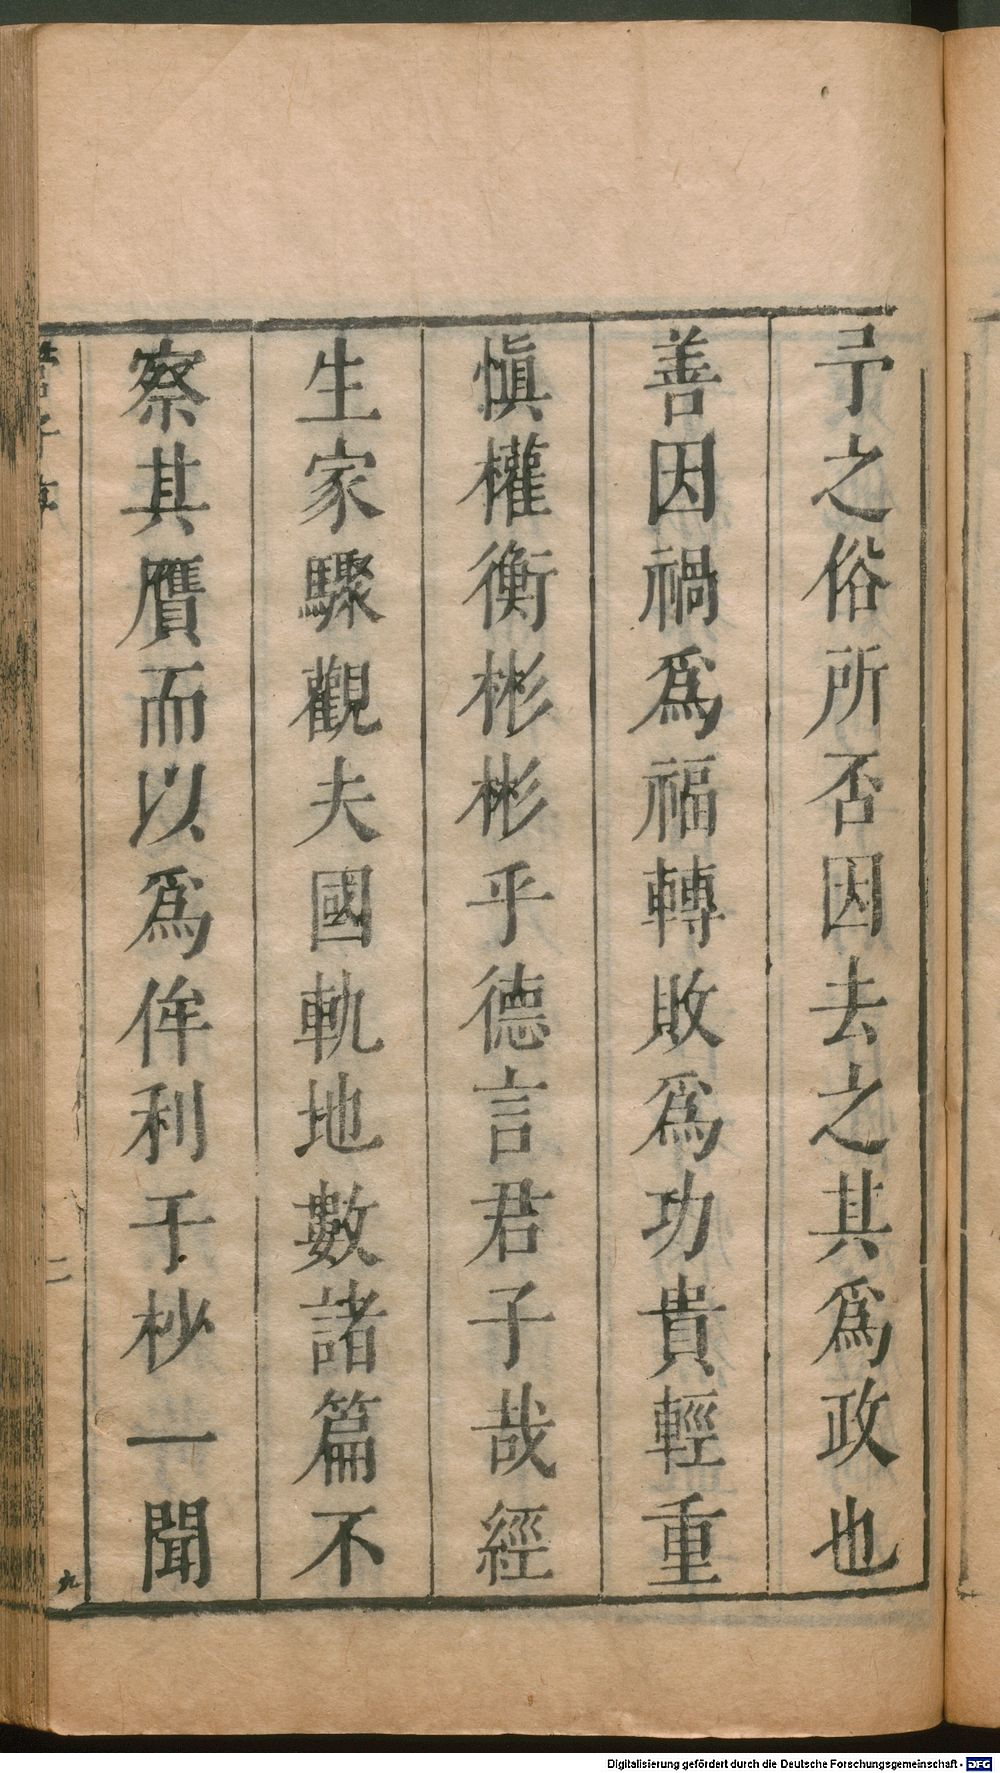 予之俗所否因去之其爲政也
善因禍爲福轉敗爲功貴輕重
愼權衡彬彬乎德言君子哉經
生家驟觀夫國軌地數諸篇不
察其贗而以爲侔利于杪一聞
二
九
Digitalisierung gefördert durch die Deutsche Forschungsgemeinschaft - DFG